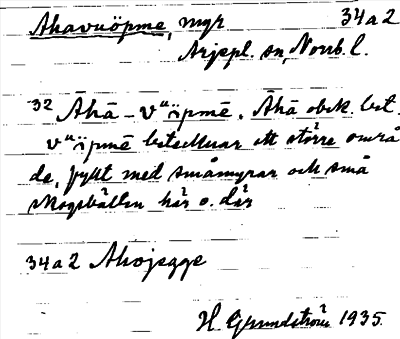 Akavuöpme, myr 34a2
Arjepl. sn, Norrb. l.
32 Āhā - vuöpmē. Āhā obek. bet.
vuöpmē betecknar ett större områ
de, fyllt med småmyrar och små
skogshällen här o. där
34a2 Akojegge
H. Grundström 1935.